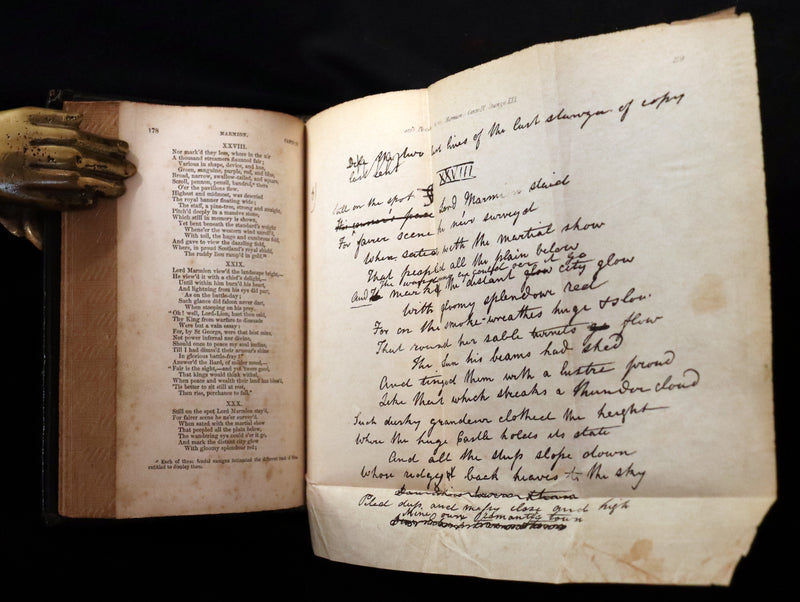 178
MARMION.
CANTO
XXVIII.
Nor mark'd they less, where in the air
A thousand streamers flaunted fair;
Various in shape, device, and hue,
Green, sanguine, purple, red, and blue,
Broad, narrow, swallow-tailed, and square,
Scroll, pennon, pensil, bandrol,* there
O'er the pavilions flew.
Highest and midmost, was descried
The royal banner floating wide;
The staff, a pine-tree, strong and straight,
Pitch'd deeply in a massive stone,
Which still in memory is shown,
Yet bent beneath the standard's weight
Whene'er the western wind unroll'd,
With toil, the huge and cumbrous fold,
And gave to view the dazzling field,
Where, in proud Scotland's royal shield,
The ruddy lion ramp'd in gold.
XXIX.
Lord Marmion view'd the landscape bright,—
He view'd it with a chief's delight,—
Until within him burn'd his heart,
And lightning from his eye did part,
As on the battle-day;
Such glance did falcon never dart,
When stooping on his prey.
"Oh! well, Lord-Lion, hast thou said,
Thy King from warfare to dissuade
Were but a vain essay:
For, by St George, were that host mine,
Not power infernal nor divine,
Should once to peace my soul incline,
Till I had dimm'd their armour's shine
In glorious battle-fray!"
Answer'd the Bard, of milder mood,—
"Fair is the sight,—and yet 'twere good,
That kings would think withal,
When peace and wealth their land has bless'd,
'Tis better to sit still at rest,
Then rise, perchance to fall."
XXX.
Still on the spot Lord Marmion stay'd,
For fairer scene he ne'er survey'd.
When sated with the martial show
That peopled all the plain below,
The wandering eye could o'er it go,
And mark the distant city glow
With gloomy splendour red;
* Each of these feudal ensigns intimated the different rank of those
entitled to display them.
Marmion: Canto IV, Stanza XXX
Dele the two last lines of the last stanza of copy
last sent
XXVIII
Still on the spot Lord Marmion staid
For fairer scene he neer surveyd
When sated with the martial show
That peopled all the plain below
The wandering eye could oer it go
And mark the distant city glow
With gloomy splendour red
For on the smoke-wreathes huge & slow
That round her sable turrets flow
The Sun his beams had shed
And tinged them with a lustre proud
Like that which streaks a thunder cloud
Such dusky grandeur clothed the height
Where the huge Castle holds its state
And all the steep slope down
Whose ridgy back heaves to the sky
Piled deep and massy close and high
Mine own romantic town